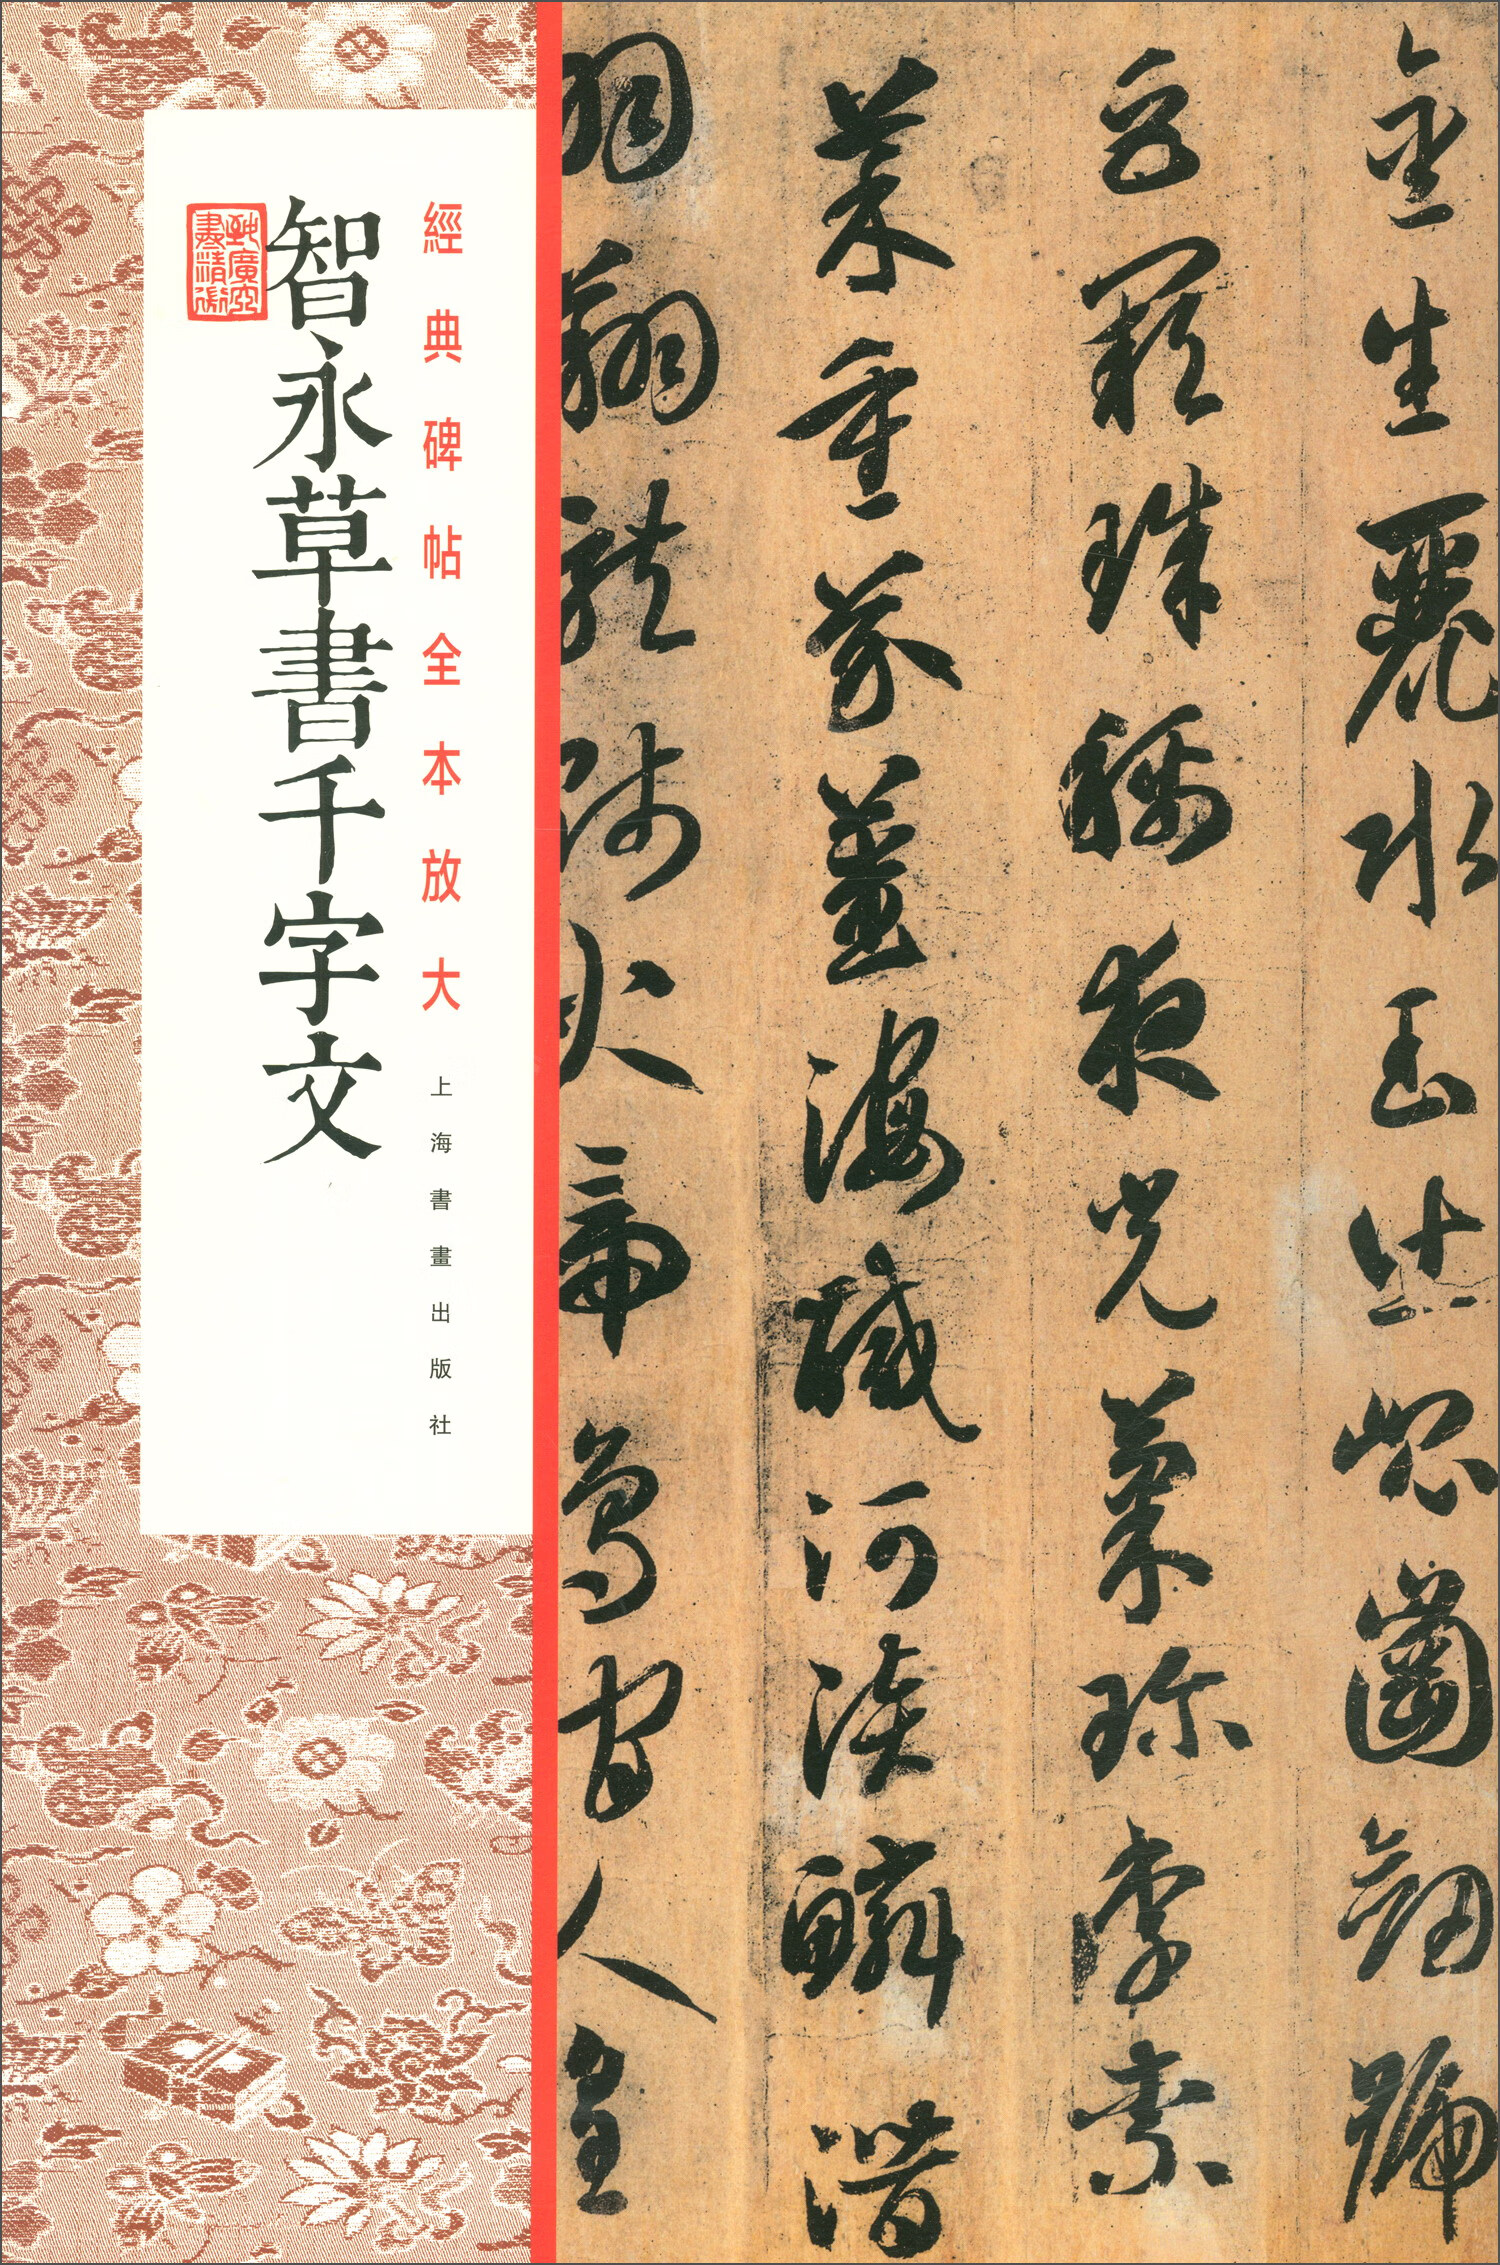 經典碑帖全本放大
上海書畫出版社
智永草書千字文
金生麗水玉出崐崗劍號
巨闕珠稱夜光菓珍李柰
菜重芥薑海鹹河淡鱗潛
羽翔龍師火帝鳥官人皇